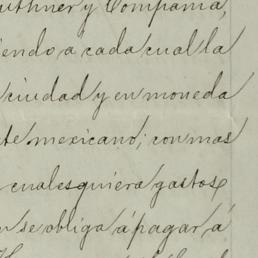 uthner y Compañia,
iendo a cada cual la
ciudad y en moneda
te mexicano; con mas
cualesquiera gastos
se obliga á pagar á